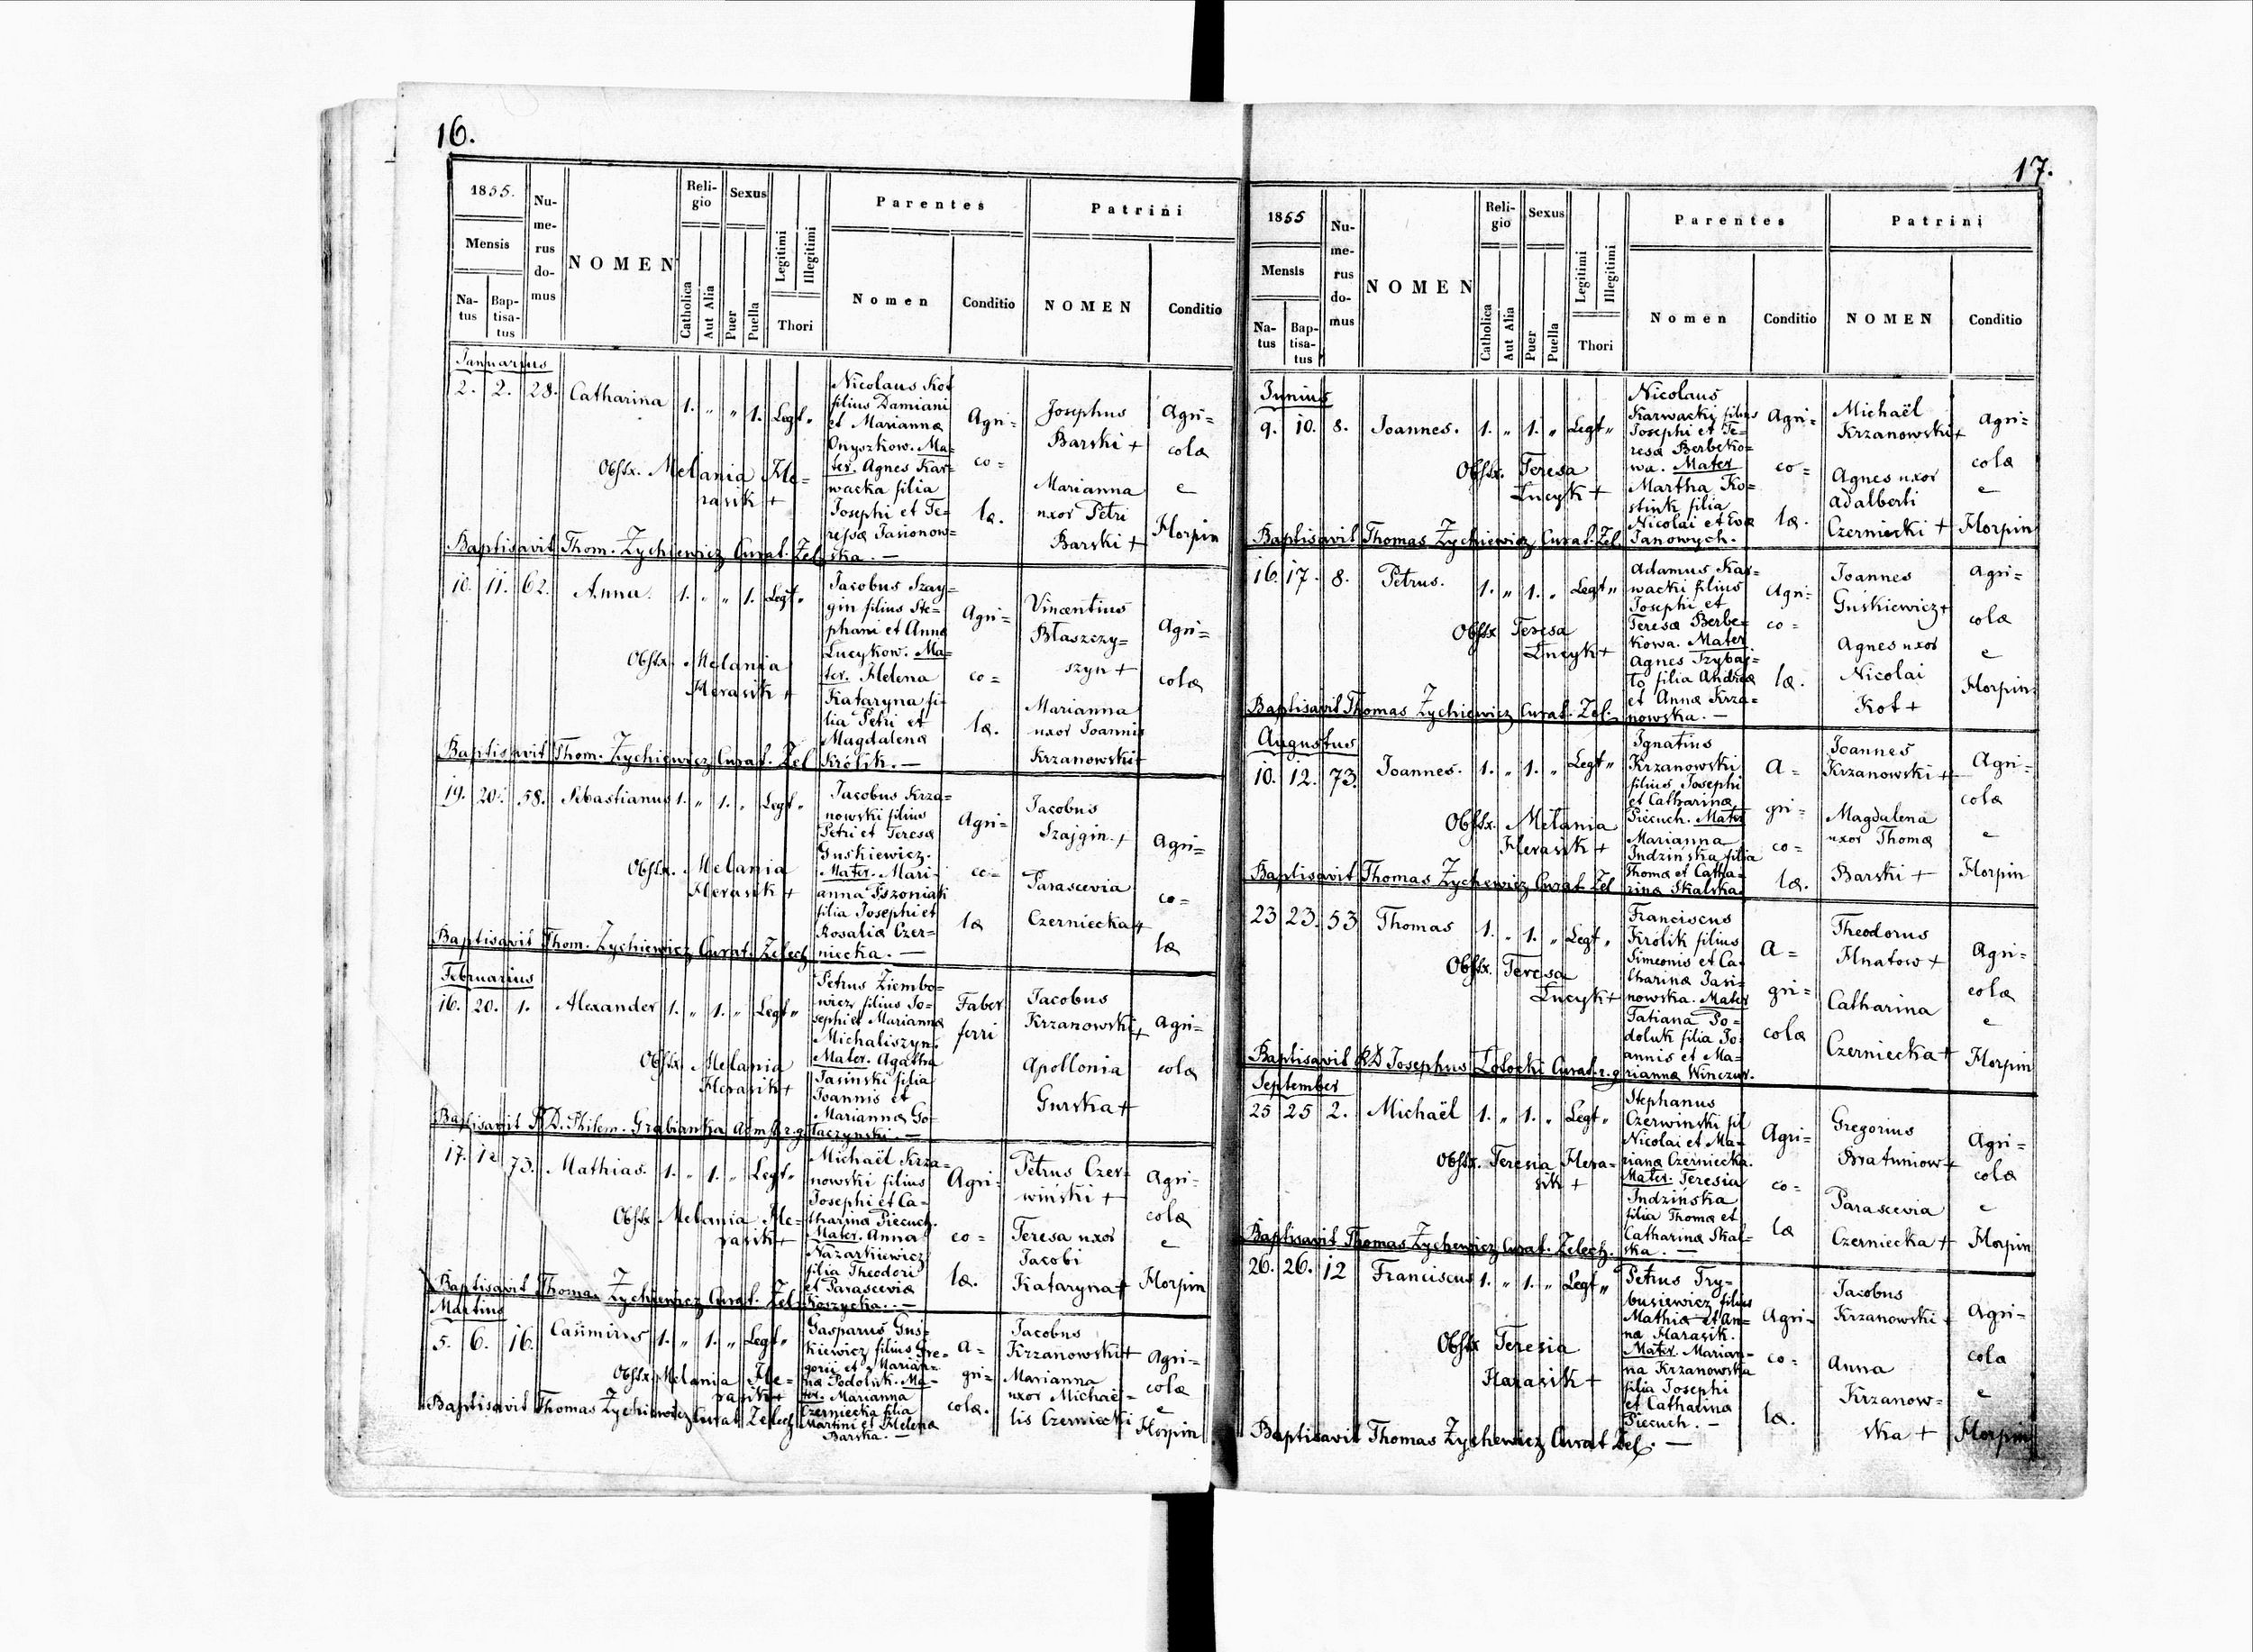 16.
1855.
Mensis
Na-
tus
Bap-
tisa-
tus
Nu-
me-
rus
do-
mus
NOMEN
Reli-
gio
Catholica
Aut Alia
Sexus
Puer
Puella
Legitimi
Illegitimi
Thori
Parentes
Nomen
Conditio
Patrini
NOMEN
Conditio
Januarius
2. 2. 28. Catharina 1. " " 1. Legt "
Nicolaus Kot
filius Damiani
et Marianna
Onyszkow. Ma-
ter. Agnes Kar-
wacka filia
Josephi et Te-
ressa Jasionow-
ska. —
Agri=
co=
lae.
Josephus
Barski +
Marianna
uxor Petri
Barski +
Agri=
colae
e
Horpin
Obstx. Melania He=
rasik +
Baptisavit Thom. Zychiewicz Curat. Zel
10. 11. 62. Anna. 1. " " 1. Legt "
Jacobus Szay=
gin filius Ste=
phani et Anna
Łucykow. Ma-
ter. Helena
Kataryna fi-
lia Petri et
Magdalena
Królik. —
Agri=
co=
lae.
Vincentius
Błaszczy=
szyn +
Marianna
uxor Joannis
Krzanowski +
Agri=
colae
Obstx. Melania
Herasik +
Baptisavit Thom. Zychiewicz Curat. Zel
19. 20. 58. Sebastianus 1. " 1. " Legt "
Jacobus Krza=
nowski filius
Petri et Teresae
Guskiewicz.
Mater. Mari-
anna
filia Josephi et
Rosaliae Czer-
niecka. —
Agri=
co=
lae
Jacobus
Szajgin. +
Parascevia
Czerniecka +
Agri=
co=
lae
Obstx. Melania
Herasik +
Baptisavit Thom. Zychiewicz Curat. Zelech
Februarius
16. 20. 1. Alexander 1. " 1. " Legt "
Petrus Ziembo=
wicz filius Jo=
sephi et Marianna
Michaliszyn.
Mater. Agatha
Jasinski filia
Joannis et
Marianna Go-
łaczynski. —
Faber
ferri
Jacobus
Krzanowski +
Apollonia
Gurska +
Agri=
colae
Obstx. Melania
Herasik +
Baptisavit R.D. Philem. Grabianka Admst r.g
17. 73. Mathias. 1. " 1. " Legt "
Michaël Krza=
nowski filius
Josephi et Ca=
tharina Piecuch.
Mater. Anna
Nazarkiewicz
filia Theodori
et Parascevia
Koszycka. —
Agri=
co=
lae.
Petrus Czer-
wiński +
Teresa uxor
Jacobi
Kataryna +
Agri=
colae
e
Horpin
Obstx. Melania He=
rasik +
Baptisavit Thomas Zychiewicz Curat. Zel
Martius
5. 6. 16. Casimirus 1. " 1. " Legt "
Gasparus Gus-
kiewicz filius Gre-
gorii et Marian-
na Podoluk. Ma-
ter. Marianna
Czerniecka filia
Martini et Helena
Barska. —
A=
gri=
colae.
Jacobus
Krzanowski +
Marianna
uxor Michaë-
lis Czerniecki
Agri=
colae
e
Horpin
Obstx. Melania He=
rasik +
Baptisavit Thomas Zychiewicz Curat Zelech
17.
1855
Mensis
Na-
tus
Bap-
tisa-
tus
Nu-
me-
rus
do-
mus
NOMEN
Reli-
gio
Catholica
Aut Alia
Sexus
Puer
Puella
Legitimi
Illegitimi
Thori
Parentes
Nomen
Conditio
Patrini
NOMEN
Conditio
Junius
9. 10. 8. Joannes. 1. " 1. " Legt "
Nicolaus
Karwacki filius
Josephi et Te=
resae Berbeko=
wa. Mater
Martha Ko=
stiuk filia
Nicolai et Eva
Janowych.
Agri=
co=
lae.
Michaël
Krzanowski +
Agnes uxor
Adalberti
Czerniecki +
Agri=
colae
e
Horpin
Obstx. Teresa
Łucyk +
Baptisavit Thomas Zychiewicz Curat. Zel.
16. 17. 8. Petrus. 1. " 1. " Legt "
Adamus Kar=
wacki filius
Josephi et
Teresae Berbe=
kowa. Mater.
Agnes Szybas=
to filia Andrea
et Anna Krza=
nowska. —
Agri=
co=
lae.
Joannes
Guskiewicz +
Agnes uxor
Nicolai
Kot +
Agri=
colae
e
Horpin
Obstx Teresa
Łucyk +
Baptisavit Thomas Zychiewicz Curat. Zel.
Augustus
10. 12. 73. Joannes. 1. " 1. " Legt "
Ignatius
Krzanowski
filius Josephi
et Catharina
Piecuch. Mater
Marianna
Indzińska filia
Thoma et Catha-
rina Skalska
A=
gri=
co=
lae.
Joannes
Krzanowski +
Magdalena
uxor Thomae
Barski +
Agri=
colae
e
Horpin
Obstx. Melania
Herasik +
Baptisavit Thomas Zychewicz Curat Zel
23 23. 53 Thomas 1. " 1. " Legt "
Franciscus
Królik filius
Simeonis et Ca-
tharina Jasi-
nowska. Mater
Tatiana Po-
doluk filia Jo-
annis et Ma-
rianna Winczur.
A=
gri=
colae
Theodorus
Hnatow +
Catharina
Czerniecka +
Agri=
colae
e
Horpin
Obstx. Teresa
Łucyk +
Baptisavit RD Josephus Łotocki Curat. r.g
September
25 25 2. Michaël 1. " 1. " Legt "
Stephanus
Czerwinski fil
Nicolai et Ma-
riana Czerniecka.
Mater. Teresia
Indzińska
filia Thoma et
Catharina Skal-
ska. —
Agri=
co=
lae
Gregorius
Bratuniow +
Parascevia
Czerniecka +
Agri=
colae
e
Horpin
Obstx. Teresia Hera=
sik +
Baptisavit Thomas Zychewicz Curat. Zelech.
26. 26. 12 Franciscus 1. " 1. " Legt "
Petrus Try-
busiewicz filius
Mathia et An-
na Harasik.
Mater. Marian-
na Krzanowska
filia Josephi
et Catharina
Piecuch. —
Agri=
co=
lae.
Jacobus
Krzanowski +
Anna
Krzanow=
ska +
Agri=
cola
e
Horpin
Obstx Teresia
Harasik +
Baptisavit Thomas Zychewicz Curat Zel. —